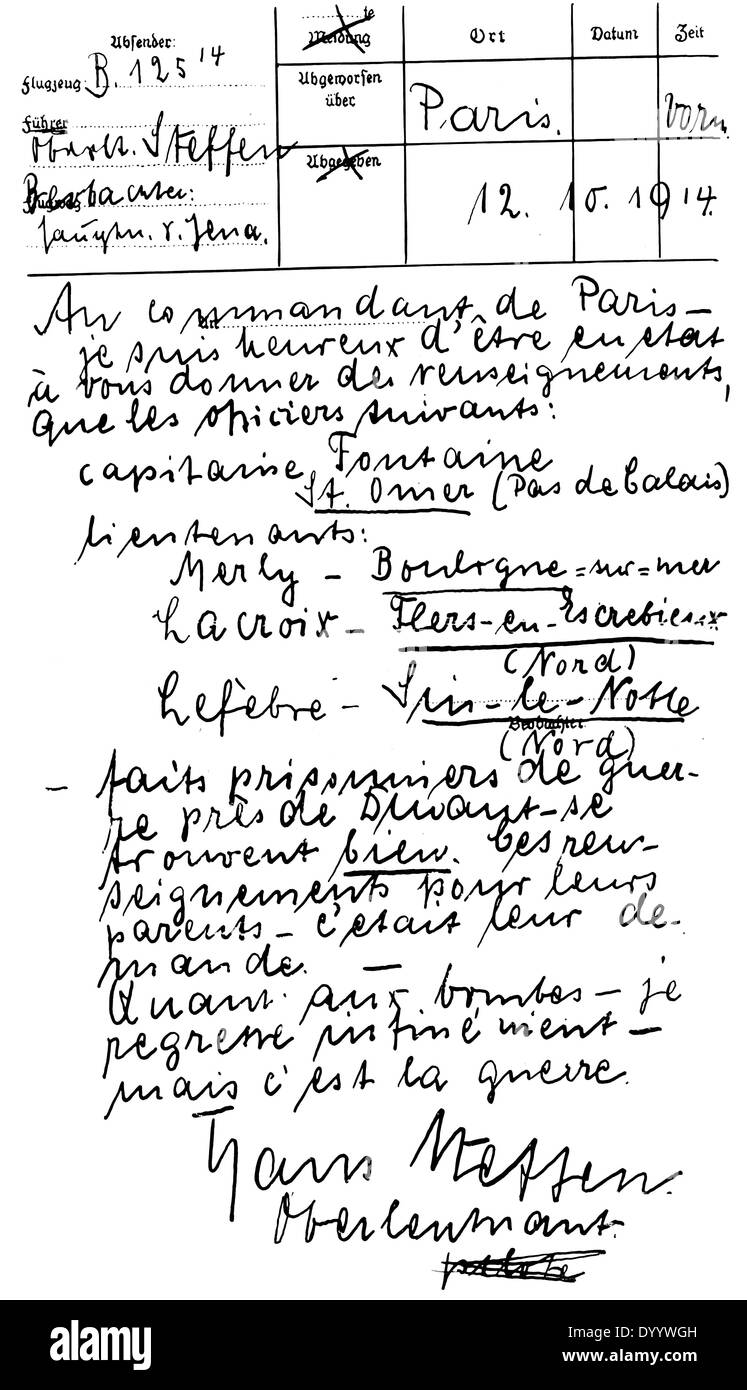 Absender:
Flugzeug: B. 125 14
Führer
Oberlt. Steffen
Beobachter:
Hauptm. v. Jena.
te
Meldung
Abgeworfen
über
Abgegeben
Ort
Datum
Zeit
Paris.
Vorm.
12. 10. 1914.
Au commandant de Paris –
je suis heureux d'être en état
à vous donner des renseignements,
que les officiers suivants:
capitaine Fontaine
St. Omer (Pas de Calais)
lieutenants:
Merly – Boulogne=sur=mer
Lacroix – Flers-en-Escrebieux
(Nord)
Lefèbre – Sin-le-Noble
Beobachter
(Nord)
– faits prisonniers de guer-
re près de Dinant – se
trouvent bien. Ces ren-
seignements pour leurs
parents – c'était leur de-
mande. –
Quant aux bombes – je
regrette infiniément –
mais c'est la guerre.
Hans Steffen.
Oberleutnant.
alamy
Image ID: DYYWGH
www.alamy.com